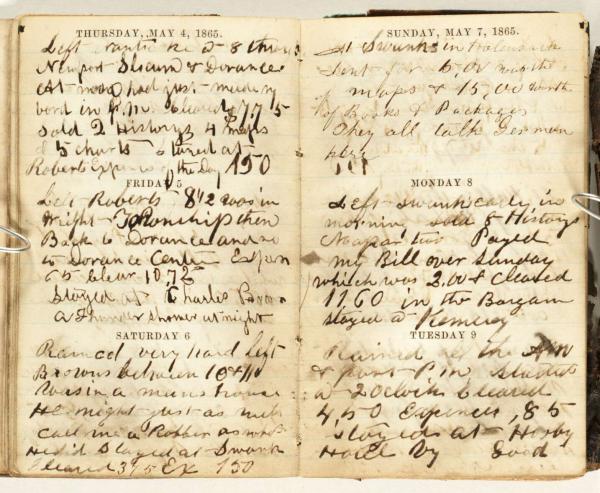 THURSDAY, MAY 4, 1865.
Left Nanticoke at 8 thro
Newport Slocum & Dorance
At noon had just made my
bord in P.M. Cleared 7,75
Sold 2 Historys 4 maps
& 5 charts Stayed at
Roberts Expens of the Day 150
FRIDAY 5
Left Roberts 8 1/2 was in
Wright Township then
Back to Dorance and so
to Dorance Center Expen
65 Clear 10,72
Stayed at Charles
a Thunder shower at night
SATURDAY 6
Rained very hard left
Browns between 10 & 11
Was in a mans house
He might just as well
call me a Robber as what
He did Stayed at Swank
Cleared 375 Ex 150
SUNDAY, MAY 7, 1865.
At Swanks in
Sent for 6,00 worth
of maps & 15,00 worth
of Books & Packages
They all talk German
here
MONDAY 8
Left Swank early in
morning sold 8 Historys
Mapar two Payed
my Bill over Sunday
which was 2.00 & Cleared
11.60 in the Bargain
stayed at
TUESDAY 9
Rained all the A M
& part P M Started
at 2 Oclock Cleared
4,50 Expences ,85
Stayed at
Hotel Good